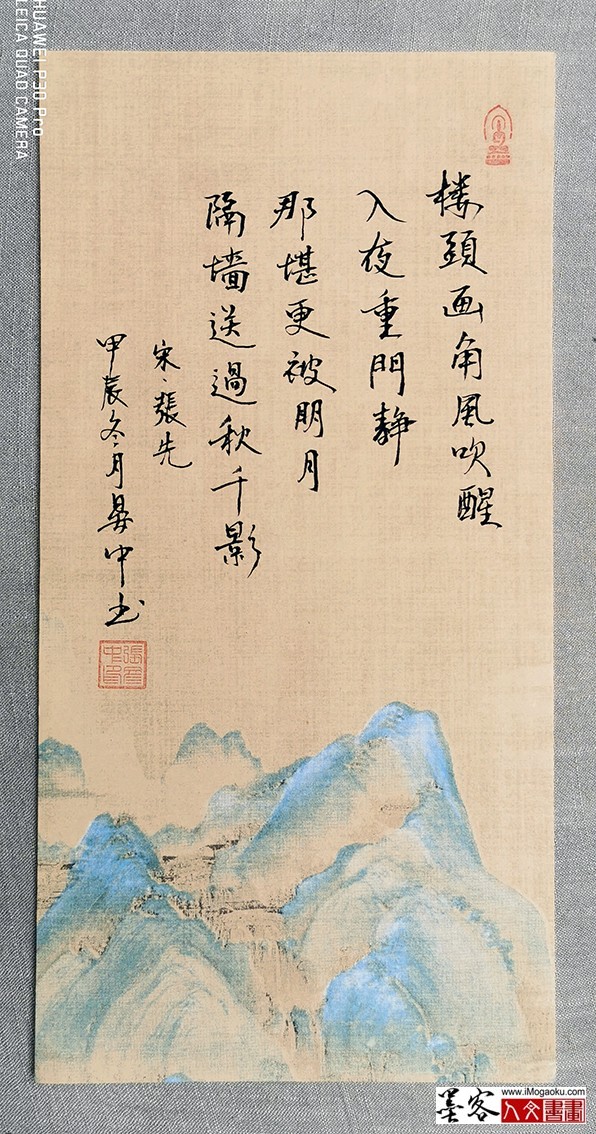 HUAWEI P30 Pro
LEICA QUAD CAMERA
楼頭画角風吹醒
入夜重門靜
那堪更被明月
隔墻送過秋千影
宋、張先
甲辰冬月中书
墨客
www.iMogaoku.com
人文書畫